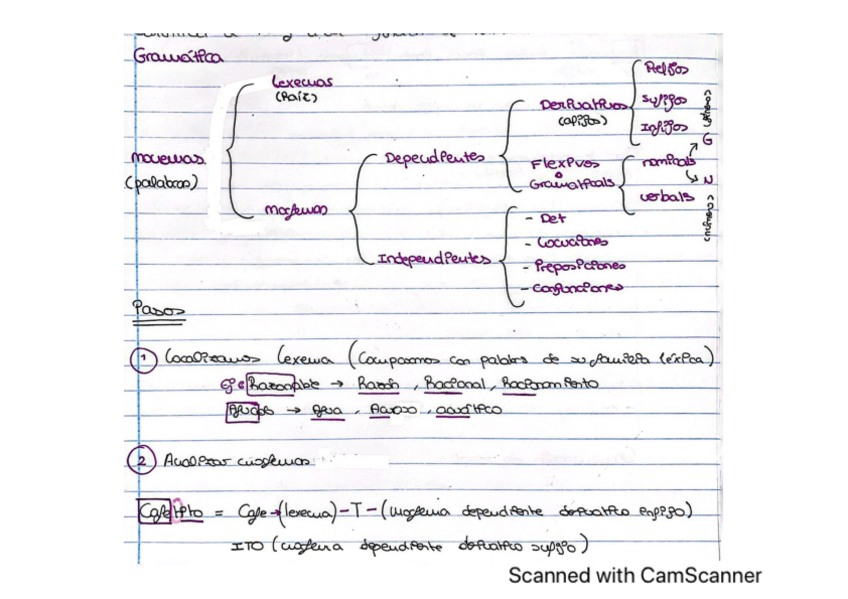 Gramática
Lexemas
(Raíz)
Monemas
(palabras)
Morfemas
Dependientes
Derivativos
(afijos)
Prefijos
Sufijos
Infijos
Flexivos
o
Gramaticals
nominals
G (género)
N (número)
verbals
Independientes
- Det
- Locuciones
- Preposiciones
- Conjunciones
Pasos
1 Localizamos lexema (Comparamos con palabras de su familia léxica)
Ej: Razonable → Razón, Racional, Racionamiento
Aguado → Agua, Acuoso, acuático
2 Analizar morfemas
Cafetito = Cafe → (lexema) - T - (morfema dependiente derivativo infijo)
ITO (morfema dependiente derivativo sufijo)
Scanned with CamScanner